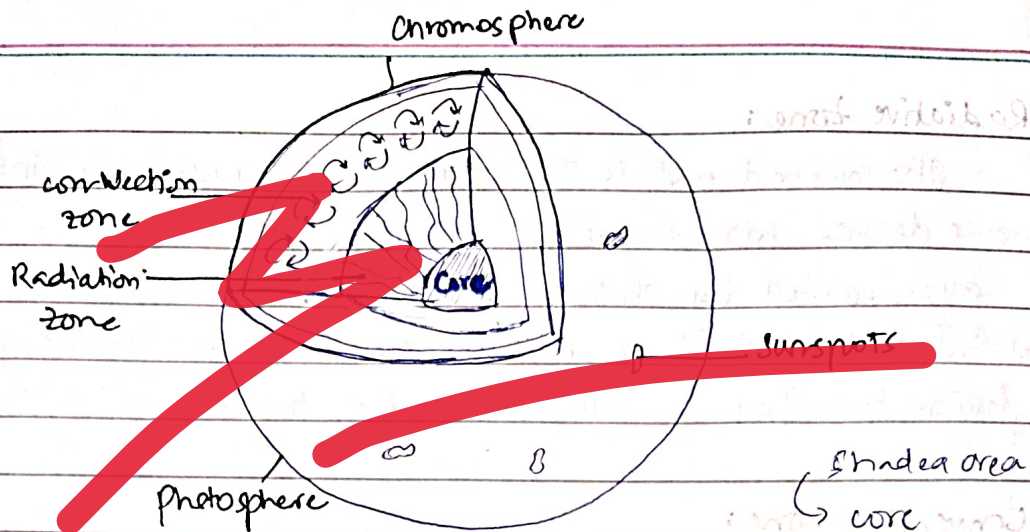 Chromosphere
convection
zone
Radiation
zone
Core
sunspots
Photosphere
shaded area
core